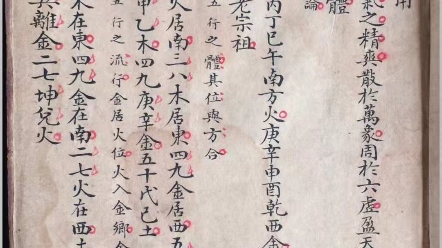 用
氣之精爽散於萬象周於六虛盈天
體
論
丙丁巳午南方火庚辛申酉乾西金
老宗祖
五行之體其位與方合
火居南三八木居東四九金居西五
甲乙木四九庚辛金五十戊己土
五行之流行金居火位火入金鄉
木在東四九金在南二七火在西土
離金二七坤兌火